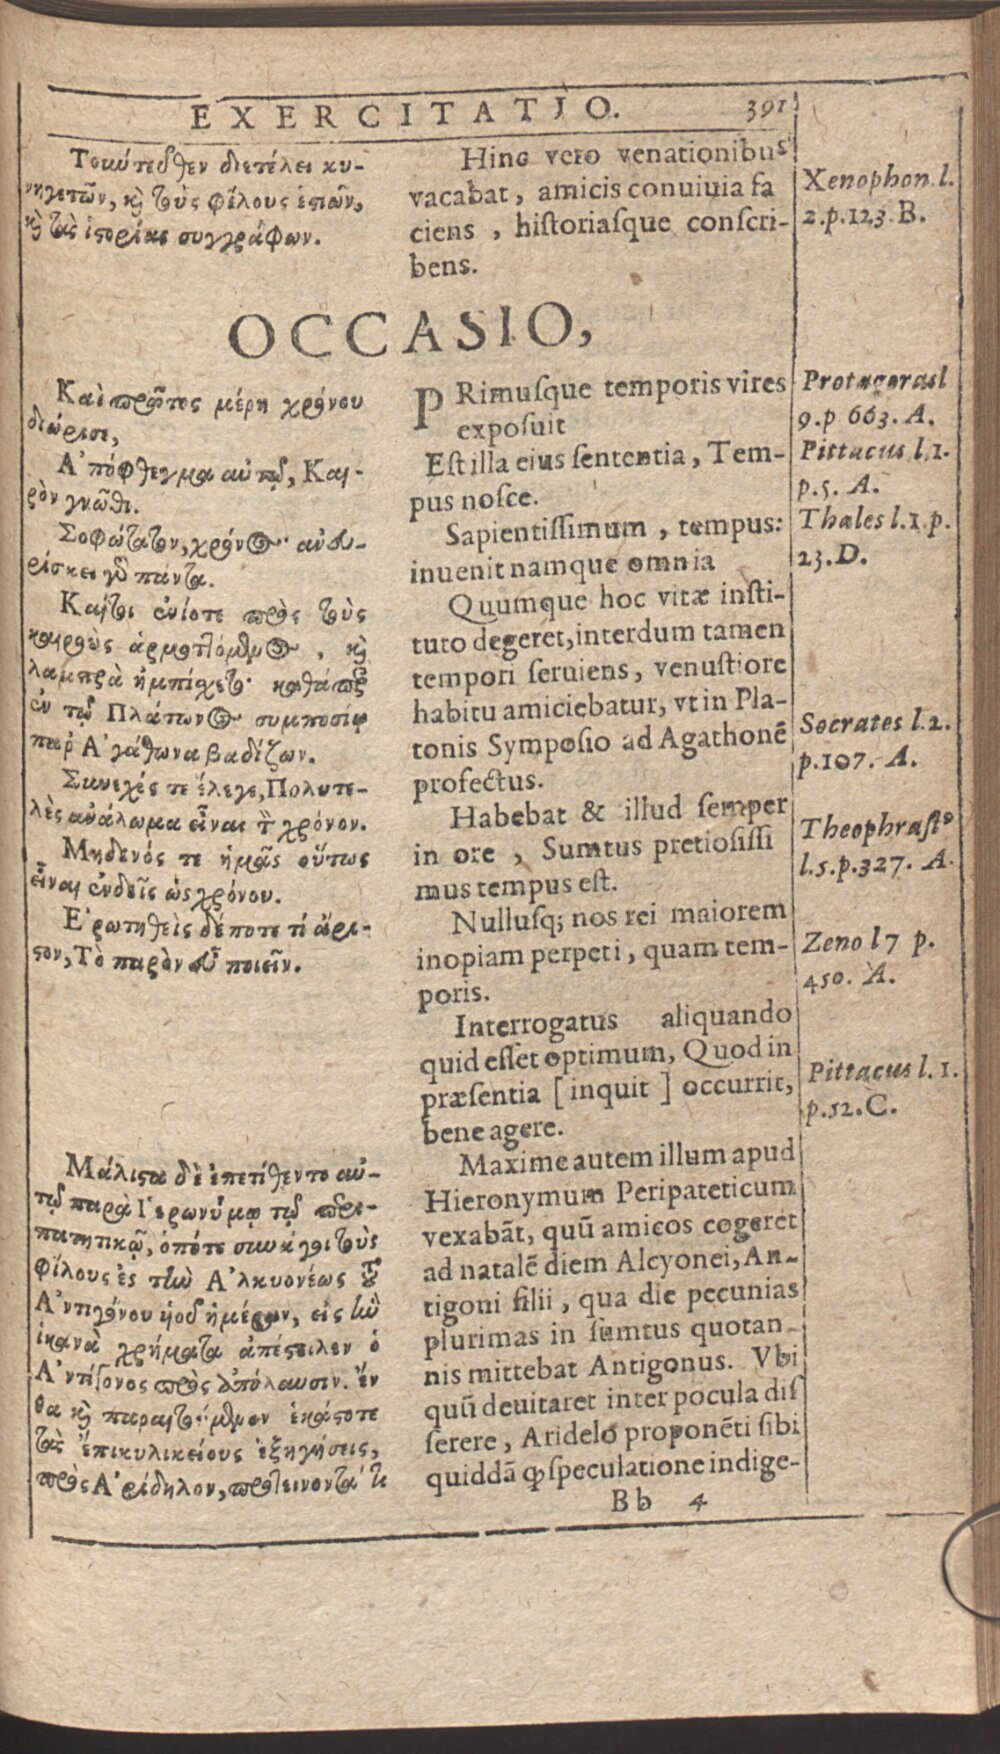 EXERCITATIO. 391
Τοὐντεῦθεν διετέλει κυ-
νηγετῶν, κὶ τοὺς φίλους ἑστιῶν,
κὶ τὰς ἱστορίας συγγράφων.
Hinc vero venationibus
vacabat, amicis conuiuia fa
ciens, historiasque conscri-
bens.
Xenophon. l.
2.p.123.B.
OCCASIO,
Καὶ πρῶτος μέρη χρόνου
διώρισε,
Α᾿πόφθεγμα αὐτῷ, Και-
ρὸν γνῶθι.
Σοφώτατον, χρόνος· ἀνευ-
ρίσκει γὸ πάντα.
Καίτοι ἐνίοτε πρὸς τοὺς
καιροὺς ἁρμοττόμενος, κὶ
λαμπρὰ ἠμπίχετο· καθάπερ
ἐν τῷ Πλάτωνος συμποσίῳ
παρ Α᾿γάθωνα βαδίζων.
Συνεχές τε ἔλεγε, Πολυτε-
λὲς ἀνάλωμα εἶναι τὸν χρόνον.
Μηδενός τε ἡμᾶς οὕτως
εἶναι ἐνδεῖς ὡς χρόνου.
Ε᾿ρωτηθεὶς δέ ποτε τί ἄρι-
στον, Τὸ παρὸν εὖ ποιεῖν.
Μάλιστα δὲ ἐπετίθεντο αὐ-
τῷ παρὰ Ι῾ερωνύμῳ τῷ περι-
πατητικῷ, ὁπότε συνῆγε τοὺς
φίλους ἐς τὴν Α᾿λκυονέως τοῦ
Α᾿ντιγόνου υἱοῦ ἡμέραν, εἰς ἣν
ἱκανὰ χρήματα ἀπέστειλεν ὁ
Α᾿ντίγονος πρὸς ἀπόλαυσιν. ἔν
θα κὶ παραιτούμενον ἑκάστοτε
τὰς ἐπικυλικείους ἐξηγήσεις,
πρὸς Α᾿ρίδηλον, προτείνοντά τι
PRimusque temporis vires
exposuit
Est illa eius sententia, Tem-
pus nosce.
Sapientissimum, tempus:
inuenit namque omnia
Quumque hoc vitæ insti-
tuto degeret, interdum tamen
tempori seruiens, venustiore
habitu amiciebatur, vt in Pla-
tonis Symposio ad Agathonē
profectus.
Habebat & illud semper
in ore, Sumtus pretiosissi
mus tempus est.
Nullusq; nos rei maiorem
inopiam perpeti, quam tem-
poris.
Interrogatus aliquando
quid esset optimum, Quod in
præsentia [inquit] occurrit,
bene agere.
Maxime autem illum apud
Hieronymum Peripateticum
vexabāt, quū amicos cogeret
ad natalē diem Alcyonei, An-
tigoni filii, qua die pecunias
plurimas in sumtus quotan-
nis mittebat Antigonus. Vbi
quū deuitaret inter pocula dis
serere, Aridelo proponēti sibi
quiddā ꝙ speculatione indige-
Protagoras l
9.p 663.A.
Pittacus l.1.
p.5. A.
Thales l.1.p.
23.D.
Socrates l.2.
p.107. A.
Theophrastꝰ
l.5.p.327. A.
Zeno l 7 p.
450. A.
Pittacus l. 1.
p.52.C.
Bb 4